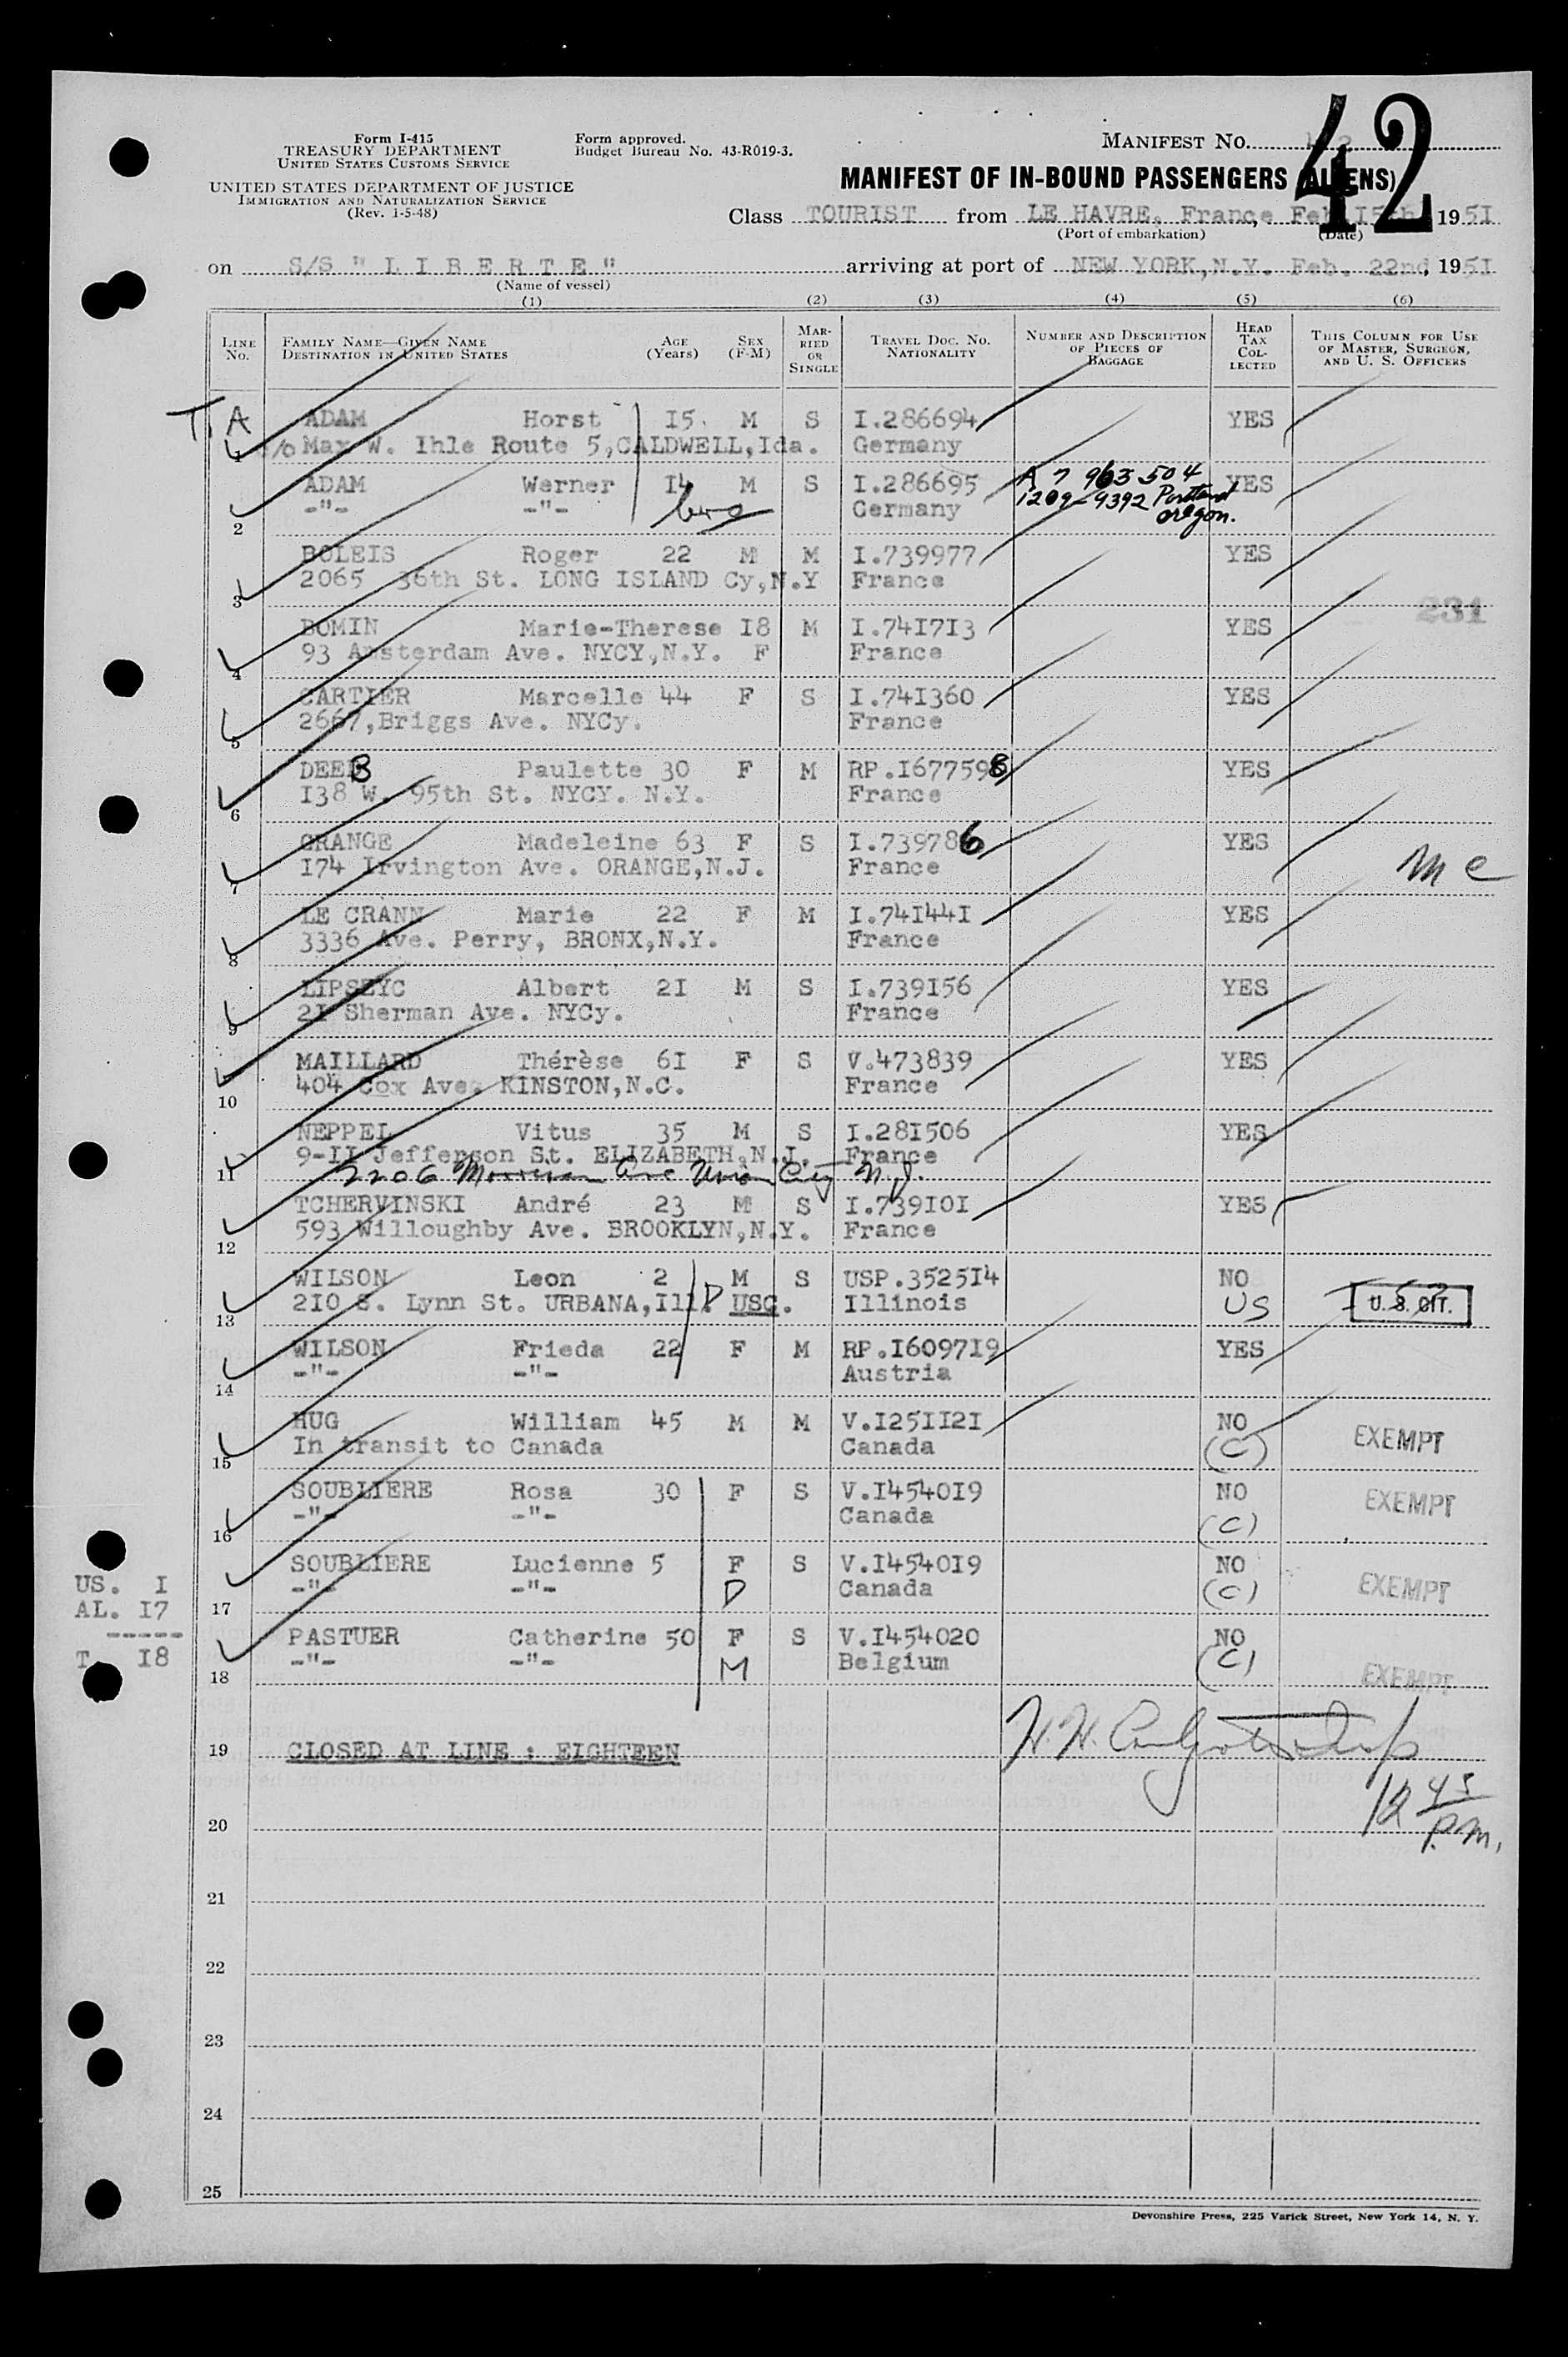 42
Form I-415
TREASURY DEPARTMENT
UNITED STATES CUSTOMS SERVICE
UNITED STATES DEPARTMENT OF JUSTICE
IMMIGRATION AND NATURALIZATION SERVICE
(Rev. 1-5-48)
Form approved.
Budget Bureau No. 43-R019-3.
MANIFEST NO.
MANIFEST OF IN-BOUND PASSENGERS (ALIENS)
Class TOURIST from LE HAVRE, France, Feb. 15th, 1951
(Port of embarkation) (Date)
on S/S "LIBERTE" arriving at port of NEW YORK, N.Y. Feb. 22nd, 1951
(Name of vessel)
(1) (2) (3) (4) (5) (6)
LINE NO. FAMILY NAME—GIVEN NAME DESTINATION IN UNITED STATES AGE (Years) SEX (F-M) MARRIED OR SINGLE TRAVEL DOC. NO. NATIONALITY NUMBER AND DESCRIPTION OF PIECES OF BAGGAGE HEAD TAX COLLECTED THIS COLUMN FOR USE OF MASTER, SURGEON, AND U. S. OFFICERS
T.A ADAM Horst 15. M S I.286694 YES
1 c/o Max W. Ihle Route 5,CALDWELL,Ida. Germany
ADAM Werner 14 M S I.286695 A 7 963 504 YES
-"- -"- bro Germany 1209-9392 Portland oregon.
2
BOLEIS Roger 22 M M I.739977 YES
3 2065 36th St. LONG ISLAND Cy,N.Y France
231
BOMIN Marie-Therese 18 M I.741713 YES
4 93 Amsterdam Ave. NYCY,N.Y. F France
CARTIER Marcelle 44 F S I.741360 YES
5 2667,Briggs Ave. NYCy. France
DEEB Paulette 30 F M RP.1677598 YES
6 138 W. 95th St. NYCY. N.Y. France
GRANGE Madeleine 63 F S I.739786 YES
7 174 Irvington Ave. ORANGE,N.J. France
M C
LE CRANN Marie 22 F M I.741441 YES
8 3336 Ave. Perry, BRONX,N.Y. France
LIPSZYC Albert 21 M S I.739156 YES
9 21 Sherman Ave. NYCy. France
MAILLARD Thérèse 61 F S V.473839 YES
10 404 Cox Ave. KINSTON,N.C. France
NEPPEL Vitus 35 M S I.281506 YES
11 9-11 Jefferson St. ELIZABETH,N.J. France
2206 Ave Union City N.J.
TCHERVINSKI André 23 M S I.739101 YES
12 593 Willoughby Ave. BROOKLYN,N.Y. France
WILSON Leon 2 M S USP.352514 NO
13 210 S. Lynn St. URBANA,Ill. D USC. Illinois US U. S. CIT.
WILSON Frieda 22 F M RP.1609719 YES
14 -"- -"- Austria
HUG William 45 M M V.1251121 NO
15 In transit to Canada Canada (C) EXEMPT
SOUBLIERE Rosa 30 F S V.1454019 NO
16 -"- -"- Canada (C) EXEMPT
SOUBLIERE Lucienne 5 F S V.1454019 NO
17 -"- -"- D Canada (C) EXEMPT
PASTUER Catherine 50 F S V.1454020 NO
18 -"- -"- M Belgium (C) EXEMPT
US. 1
AL. 17
-----
T. 18
19 CLOSED AT LINE : EIGHTEEN
12 45 P.M.
20
21
22
23
24
25
Devonshire Press, 225 Varick Street, New York 14, N. Y.